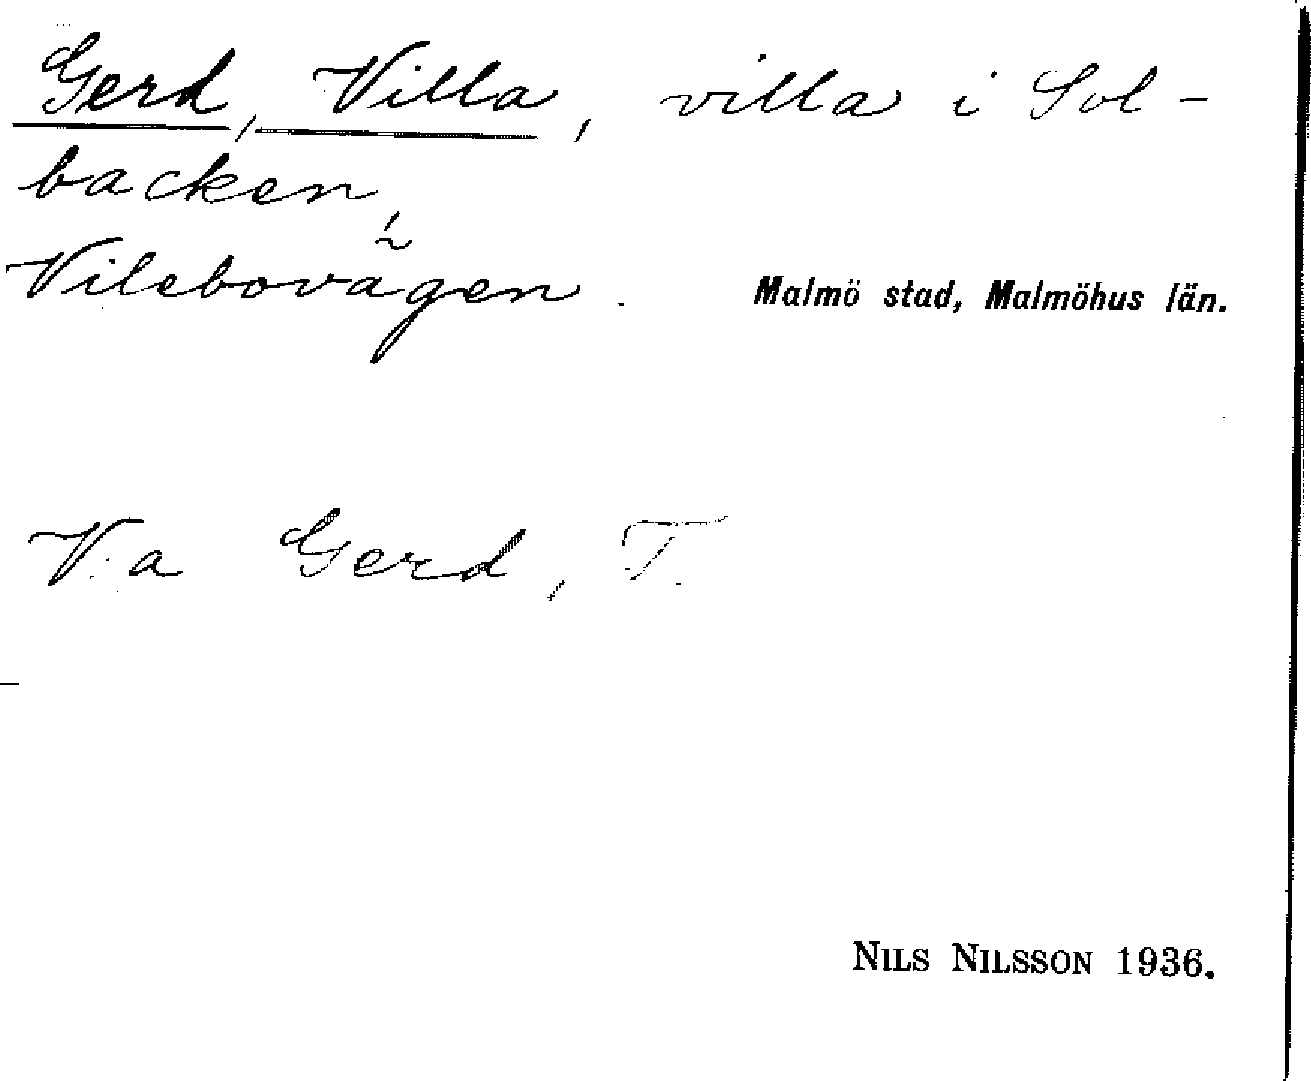 Gerd, Villa, villa i Sol-
backen,
Vilebovägen. Malmö stad, Malmöhus län.
V:a Gerd, T.
NILS NILSSON 1936.